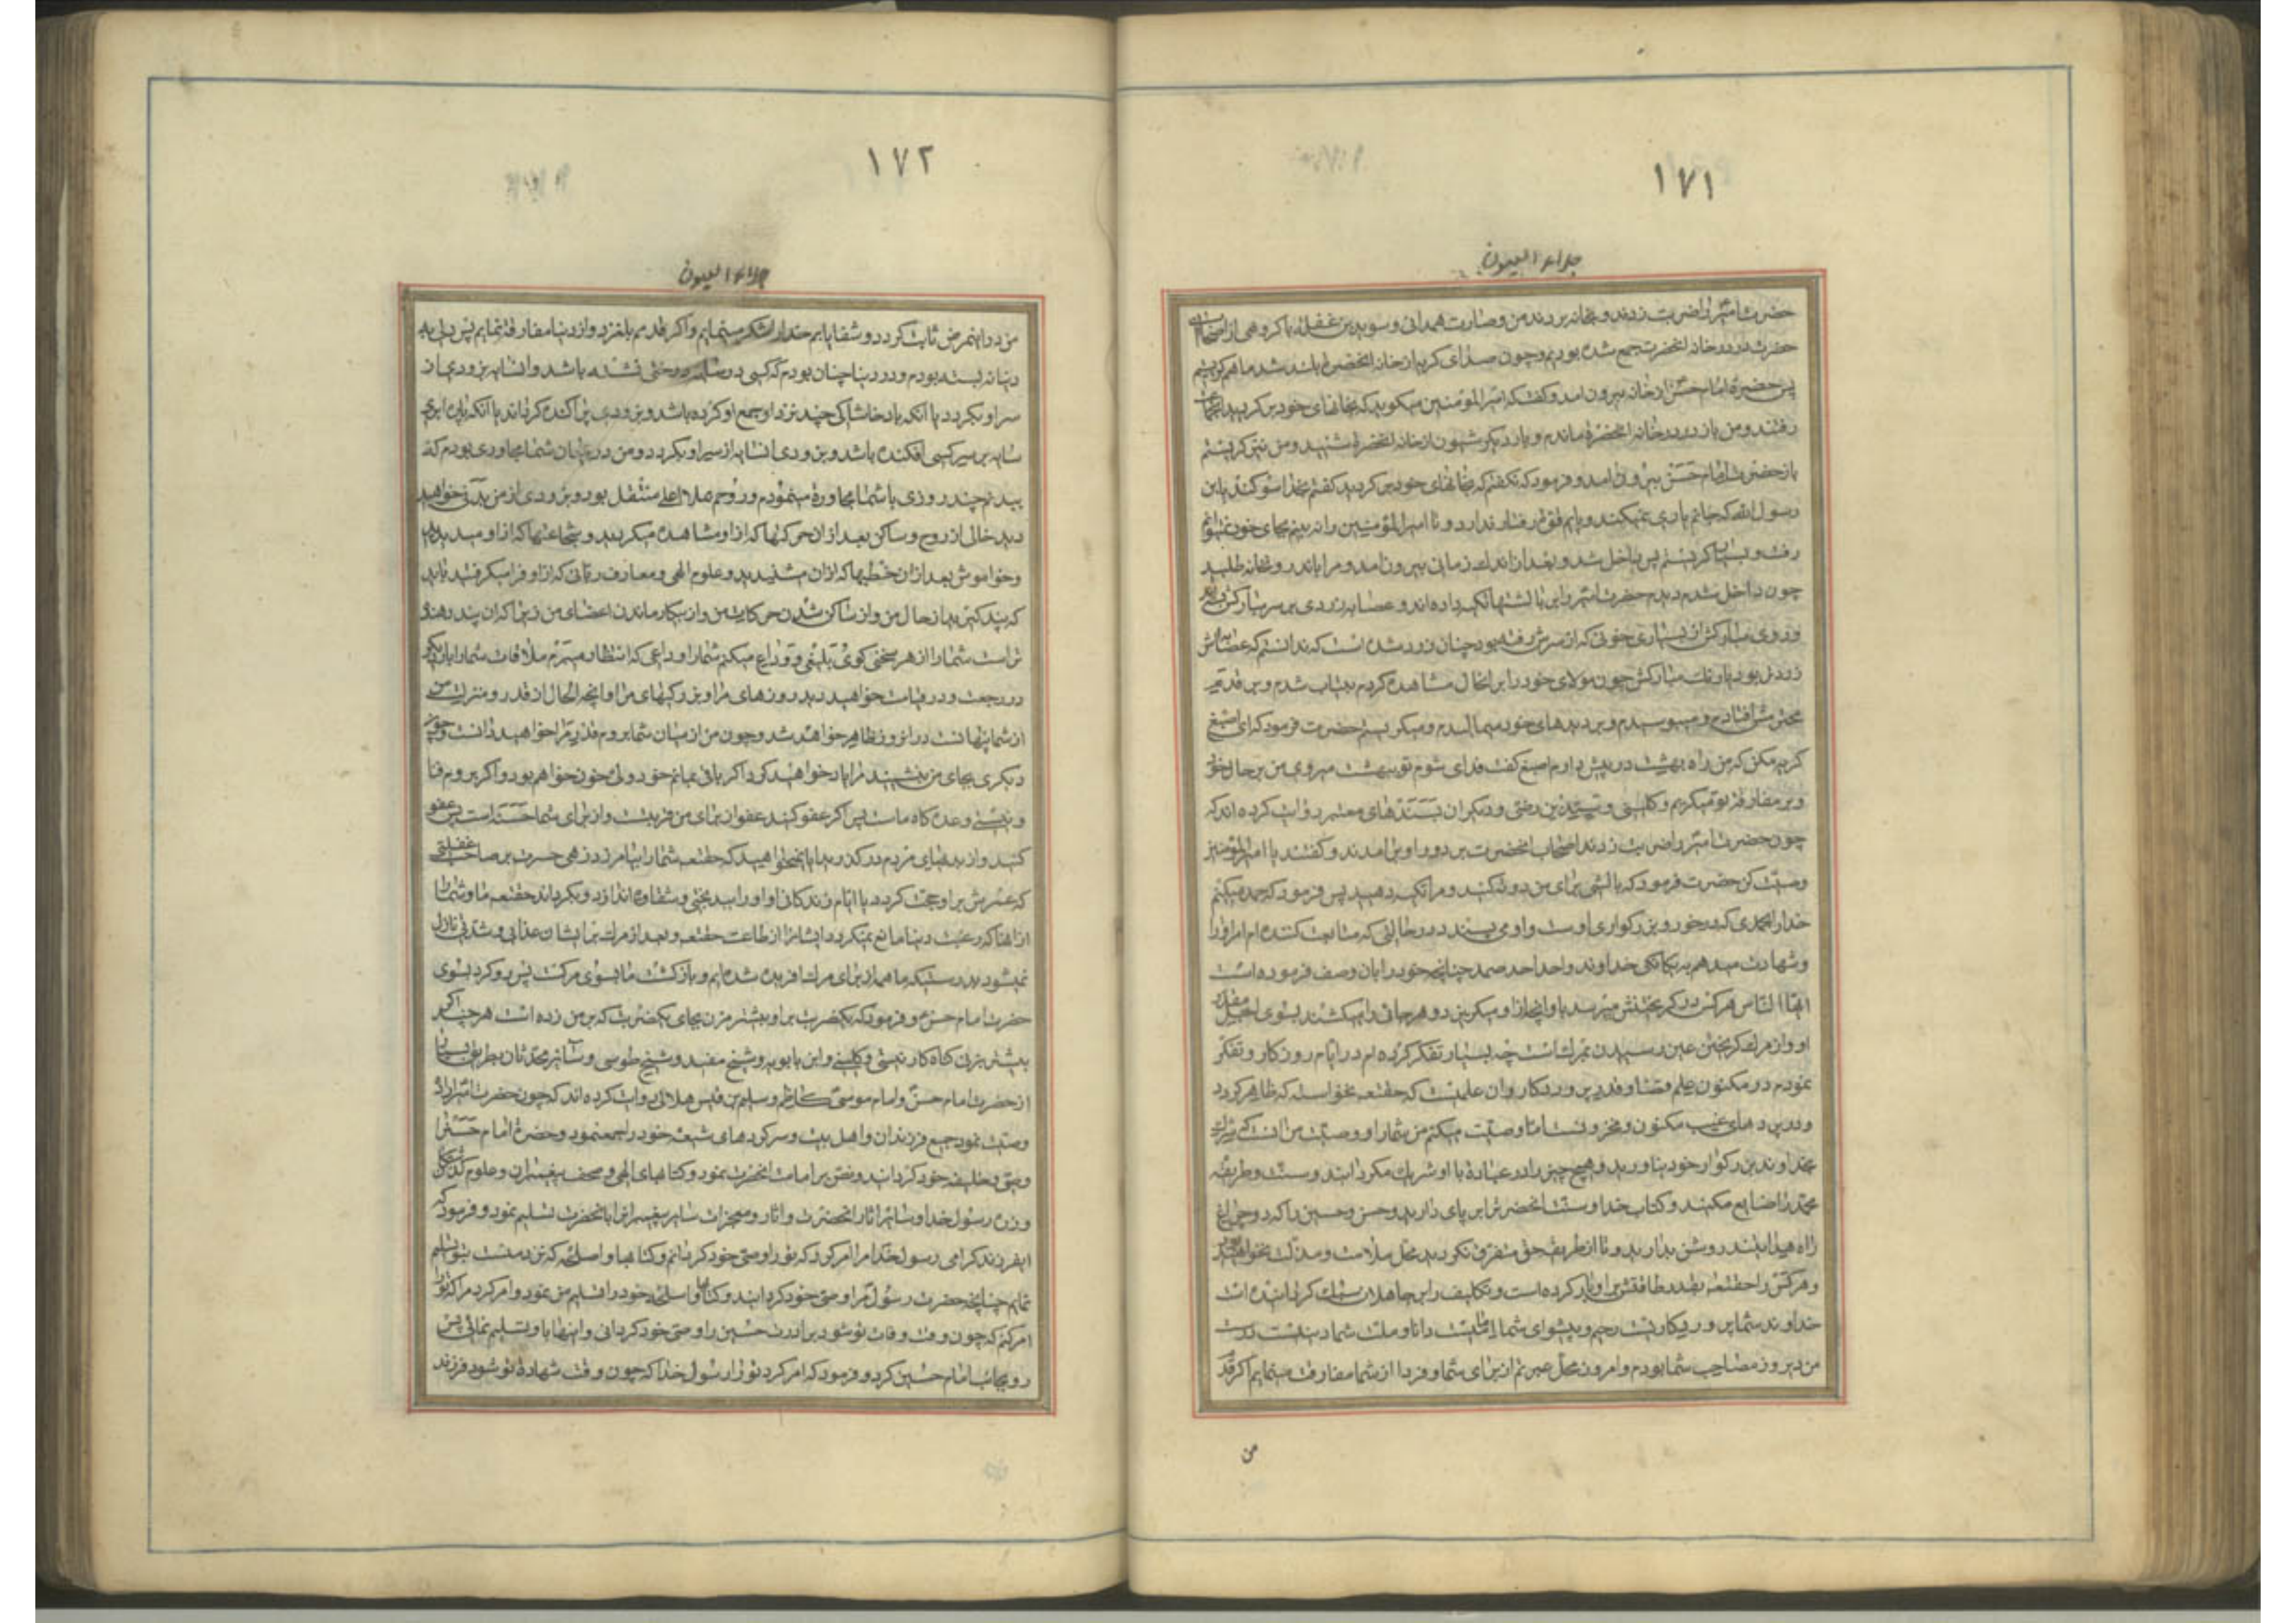 ١٧١
جلاء العیون
حضرت امیر را ضربت زدند و بخانه بردند من و حارث همدانی و سوید بن غفله با گروهی از اصحاب
حضرت در در خانه انحضرت جمع شده بودیم و چون صدای گریه از خانه انحضرت بلند شد ما هم گریستیم
پس حضرت امام حسن از خانه بیرون امد و گفت که امیر المؤمنین میگوید که بخانهای خود برگردید
رفتند و من باز در در خانه انحضرت ماندم و بار دیگر شیون از خانه انحضرت شنیدم و من نیز گریستم
باز حضرت امام حسن بیرون امد و فرمود که نگفتم که بخانهای خود برگردید گفتم بخدا سوگند یابن
رسول الله که جانم یاری نمیکند و پایم قوت رفتار ندارد و تا امیر المؤمنین را نه بینم بجای خود نمیتوانم
رفت و بسیار گریستم پس داخل شد و بعد از اندک زمانی بیرون امد و مرا باندرون خانه طلبید
چون داخل شدم دیدم حضرت امیر را بر بالشها تکیه داده اند و عصابه زردی بر سر مبارکش
و روی مبارکش از بسیاری خونی که از سرش رفته بود چنان زرد شده است که ندانستم که عصابه اش
زردتر بود یا رنگ مبارکش چون مولای خود را بر انحال مشاهده کردم بیتاب شدم و بر قدم
محترمش افتادم و میبوسیدم و بر دیدهای خود میمالیدم و میگریستم حضرت فرمود که ای اصبغ
گریه مکن که من راه بهشت در پیش دارم اصبغ گفت فدای تو شوم تو ببهشت میروی من بر حال خود
و بر مفارقت تو میگریم و کلینی و سید بن رضی و دیگران بسندهای معتبر روایت کرده اند که
چون حضرت امیر را ضربت زدند اصحاب انحضرت بر دور او بر امدند و گفتند یا امیر المؤمنین
وصیت کن حضرت فرمود که بالشی برای من دو ته کنید و مرا تکیه دهید پس فرمود که حمد میکنم
خدا را حمدی که در خور بزرگواری اوست و او می پسندد در حالتی که متابعت کننده ام امر او را
و شهادت میدهم به یگانگی خداوند واحد احد صمد چنانچه خود را بان وصف فرموده است
ایها الناس هر کس در گریختنش میرسد باو انچه از او میگریزد و هر جانی را میکشند بسوی اجل مقدر
او و از مرگ گریختن عین رسیدن بمرگ است چه بسیار تفکر کرده ام در ایام روزگار و تفکر
نمودم در مکنون علم قضا و قدر پروردگار و ان علمیست که حقتعالی نخواسته که ظاهر گردد
و در پردهای غیب مکنون و مخزونست اما وصیت میکنم من شما را و وصیت من انست که شرک
بخداوند بزرگوار خود نیاورید و هیچ چیز را در عبادت با او شریک مگردانید و سنت و طریقه
محمد را ضایع مکنید و کتاب خدا و سنت انحضرت را بر پای دارید و حسن و حسین را که دو چراغ
راه هدایتند روشن بدارید و تا از طریق حق متفرق نگردید محل ملامت و مذلت نخواهید بود
و هر کس را حقتعالی بقدر طاقتش بر او بار کرده است و تکلیف را بر جاهلان سبک گردانیده است
خداوند شما پروردگاریست رحیم و پیشوای شما امامیست دانا و ملت شما دینیست درست
من دیروز مصاحب شما بودم و امروز محل عبرتم از برای شما و فردا از شما مفارقت مینمایم اگر قدم
من
١٧٢
جلاء العیون
من در اینمرض ثابت گردد و شفا یابم خدا را شکر مینمایم و اگر قدمم بلغزد و از دنیا مفارقت نمایم پس دل به
دنیا نه بسته بودم و در دنیا چنان بودم که کسی در سایه درختی نشسته باشد و انسایه بزودی از
سر او بگردد یا انکه باد خاشاکی چند نزد او جمع اوکرده باشد و بزودی پراکنده گرداند یا انکه پاره ابری
سایه بر سر کسی افکنده باشد و بزودی انسایه از سر او بگردد و من در میان شما مجاوری بودم که
ببدنم چند روزی با شما مجاورت مینمودم و روحم بملاء اعلی متصل بود و بزودی از من بدنی خواهید
دید خالی از روح و ساکن بعد از ان حرکتها که از او مشاهده میکردید و شجاعتها که از او میدیدید
و خاموش بعد از ان خطبها که از ان میشنیدید و علوم الهی و معارف ربانی که از او فرا میگرفتید باید
که پند گیرید از حال من و از ساکن شدن حرکات من و از بیکار ماندن اعضای من زیرا که ان پند دهنده
تر است شما را از هر سخن گوی بلیغی و وداع میکنم شما را وداعی که انتظار میبرم ملاقات شما را بار دیگر
در رجعت و در قیامت خواهید دید روزهای مرا و بزرگیهای مرا و انچه الحال از قدر و منزلت من
از شما پنهانست در انروز ظاهر خواهد شد و چون من از میان شما بروم قدر مرا خواهید دانست و چون
دیگری بجای من بنشیند مرا یاد خواهید کرد اگر باقی بمانم خود ولی خون خواهم بود و اگر بروم فنا
و نیستی وعده گاه ماست پس اگر عفو کنید عفو از برای من قربتست و از برای شما حسنه است پس عفو
کنید و از بدیهای مردم در گذرید ایا نمیخواهید که حقتعالی شما را بیامرزد زهی حسرت بر صاحب غفلتی
که عمرش بر او حجت گردد یا ایام زندگانی او او را ببدبختی و شقاوت اندازد و بگرداند حقتعالی ما و شما را
از انها که رغبت دنیا مانع نمیگردد ایشانرا از طاعت حقتعالی و بعد از مرگ بر ایشان عذابی و شدتی نازل
نمیشود بدرستیکه ما همه از برای مرگ افریده شده ایم و بازگشت ما بسوی مرگست پس رو کرد بسوی
حضرت امام حسن و فرمود که یکضربت بر او بیشتر مزن بجای یکضربت که بر من زده است هر چند اگر
بیشتر بزنی گناه کار نیستی و کلینی و ابن بابویه و شیخ مفید و شیخ طوسی و سایر محدثان بطریق بسیار
از حضرت امام حسن و امام موسی کاظم و سلیم بن قیس هلالی روایت کرده اند که چون حضرت امیر اراده
وصیت نمود جمیع فرزندان و اهل بیت و سرکردهای شیعه خود را جمع نمود و حضرت امام حسن را
وصی و خلیفه خود گردانید و نص بر امامت انحضرت نمود و کتابهای الهی و صحف پیغمبران و علوم
و زره رسول خدا و سایر اثار انحضرت و اثار و معجزات سایر پیغمبرانرا بانحضرت تسلیم نمود و فرمود که
ایفرزند گرامی رسول خدا مرا امر کرد که تو را وصی خود گردانم و کتابها و اسلحه که نزد منست بتو تسلیم
نمایم چنانچه حضرت رسول مرا وصی خود گردانید و کتابها و اسلحه خود را تسلیم من نمود و امر کرد مرا که تو را
امر کنم که چون وقت وفات تو شود برادرت حسین را وصی خود گردانی و اینها را باو تسلیم نمائی پس
رو بجانب امام حسین کرد و فرمود که امر کرد تو را رسول خدا که چون وقت شهادت تو شود فرزند